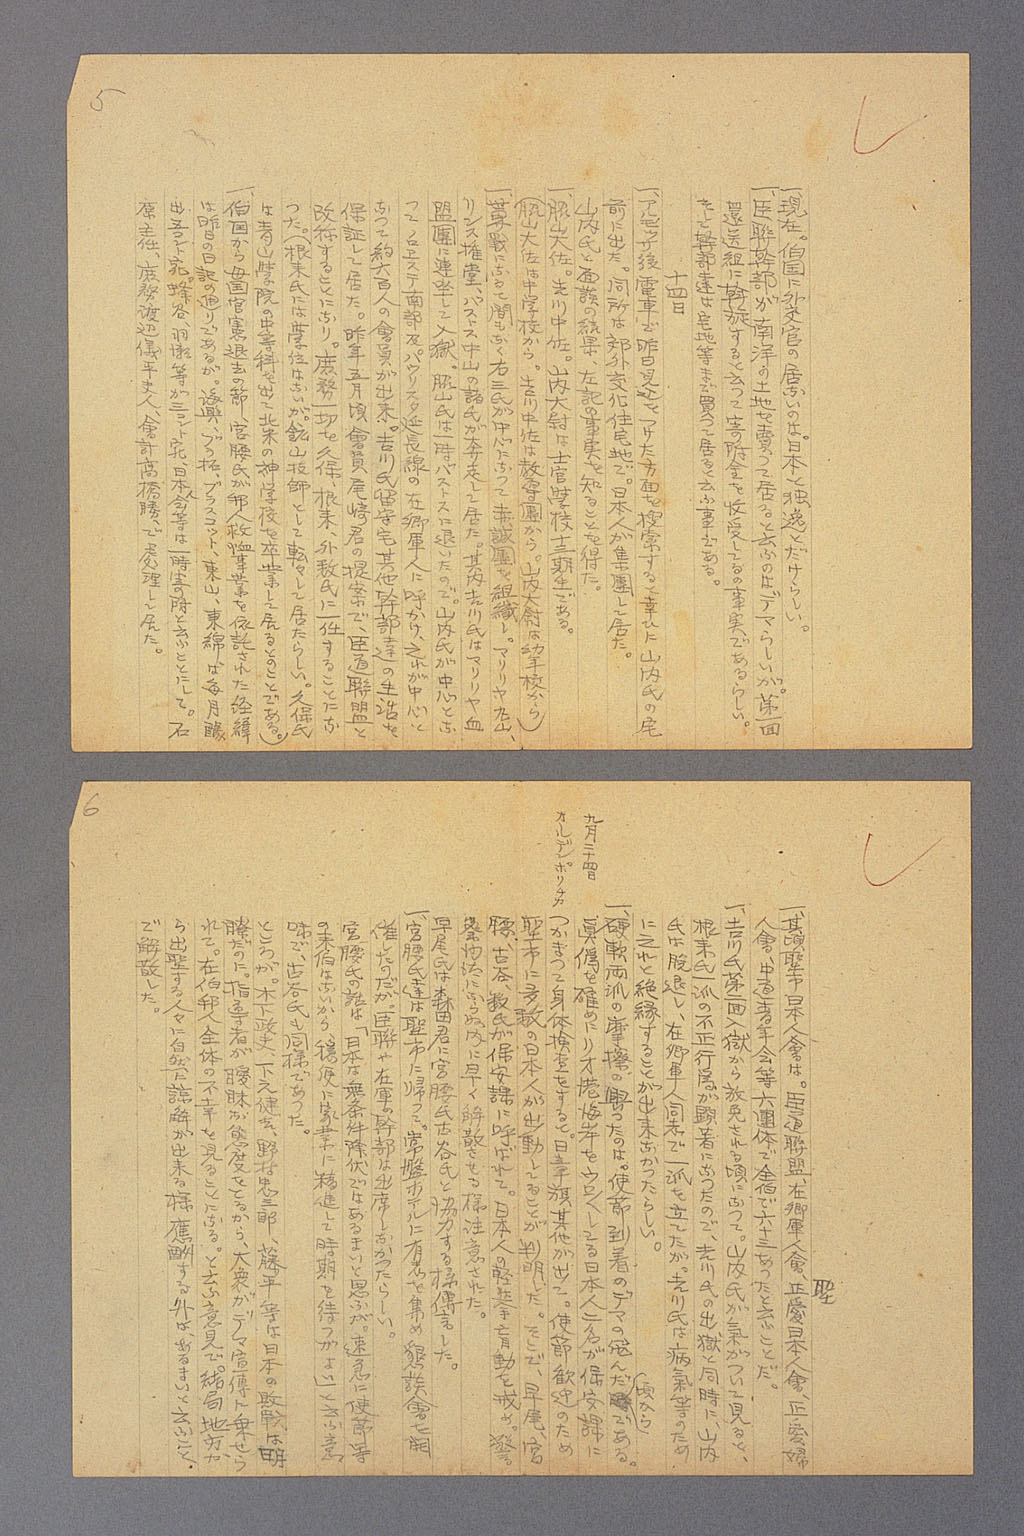 5
一、現在。伯国に外交官の居ないのは。日本と独逸とだけらしい。
一、臣聯幹部が南洋の土地を賣つて居ると云ふのはデマらしいが。第一回
還送組に斡旋すると云つて寄附金を收受しゐるの事実であるらしい。
そして幹部達は宅地等まで買つて居ると云ふ事である。
十四日
一、アルモッサ後電車で昨日見込をつけた方面を捜索すると幸ひに山内氏の宅
前に出た。同所は郊外文化住宅地で。日本人が集團して居た。
山内氏と面談の結果、左記の事実を知ることを得た。
一、脇山大佐。吉川中佐。山内大尉は士官學校十三期生である。
(脇山大佐は中学校から。吉川中佐は教導團から。山内大尉は幼年校から)
一、募戰になると間もなく右三氏が中心になつて赤誠團を組織し。マリリヤ丸山、
リンス推堂、バストス中山の諸氏が奔走して居た。其内吉川氏はマリリヤ血
盟團に連坐して入獄。脇山氏は一時バストスに退いたので。山内氏が中心とな
つてノロエステ南部及パウリスタ延長線の在郷軍人に呼かけ、之れが中心と
なつて約六百人の會員が出来。吉川氏留守宅其他幹部達の生活を
保証して居た。昨年五月頃會員尾崎君の提案で、臣道聯盟と
改称することになり。庶務一切を久保、根来、外数氏に一任することにな
つた。(根来氏には學位はないが。鉱山技師として転々して居たらしい。久保氏
は青山學院の中等科を出て北米の神学校を卒業して居るとのことである。)
一、伯国から母国官憲退去の節、宮腰氏が邦人救恤事業を依託された経緯
は昨日の日記の通りであるが。海興、ブラ拓、ブラスコット、東山、東綿、は毎月醵
出五コント宛。蜂谷、羽瀬等が三コント宛、日本人会等は一時寄附と云ふことにして。石
原主任、庶務渡辺儀平夫人、會計高橋勝、で處理して居た。
6
聖
一、其頃聖市日本人會は。臣道聯盟、在郷軍人會、正愛日本人會、正愛婦
人會、中道青年会等六團体で全宿で六十三あつたとのことだ。
一、吉川氏第一回入獄から放免される頃になつて。山内氏が氣がついて見ると、
根来氏一派の不正行爲が顕著になつたので、吉川氏の出獄と同時に、山内
氏は脱退し、在郷軍人同志で一派を立てたが。吉川氏は病氣等のため
に之れと絶縁することが出来なかつたらしい。
(頃から)
一、硬軟両派の摩擦の興つたのは。使節到着のデマの飛んだである。
九月二十四日
眞偽を確めにリオ港海岸をウロくしてゐる日本人一名が保安課に
オルデンポリチカ
つかまつて身体検査をすると。日章旗其他が出て。使節歓迎のため
聖市に多数の日本人が出動しゐることが判明した。そこで、早尾、宮
腰、古谷、数氏が保安課に呼ばれて。日本人の軽挙盲動を戒め。發
砲沙汰にならぬ内に早く解散させる様注意された。
早尾氏は森田君に宮腰氏古谷氏と協力する様傳言した。
一、宮腰氏達は聖市に帰つて。常盤ホテルに有志を集め懇談會を開
催したのだが。臣聯や在軍の幹部は出席しなかつたらしい。
宮腰氏の話は「日本は無条件降伏ではあるまいと思ふが。速急に使節等
の来伯はないから。穏便に家業に精進して時期を待つがよい」と云ふ意
味で、古谷氏も同様であつた。
ところが。木下政夫、下元健吉、野村忠三郎、藤平等は日本の敗戰は明
瞭だのに。指導者が曖昧な態度をとるから、大衆がデマ宣傳に乗せら
れて。在伯邦人全体の不幸を見ることになる。と云ふ意見で。結局地方か
ら出聖する人々に自然と諒解が出来る様應酬する外は、あるまいと云ふこと
で解散した。